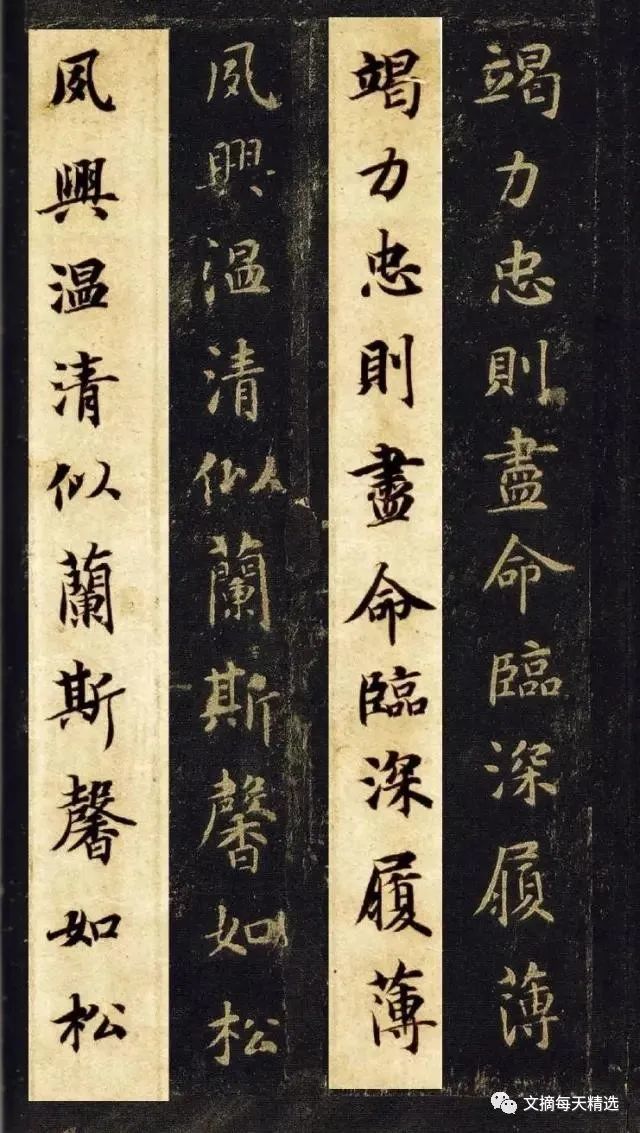 竭力忠則盡命臨深履薄
竭力忠則盡命臨深履薄
夙興温清似蘭斯馨如松
夙興温清似蘭斯馨如松
文摘每天精选